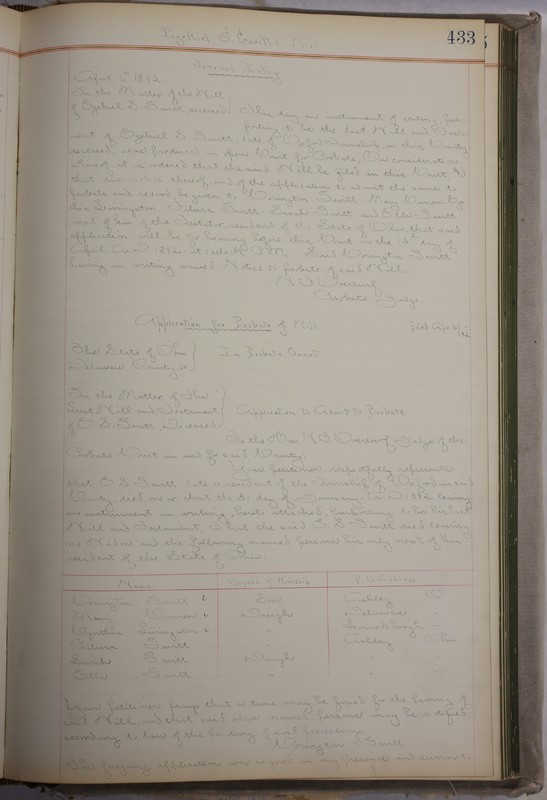 433
Ezekiel S. Smith's Will
Journal Entry
April 6th 1892.
In the Matter of the Will
of Ezekiel S. Smith, deceased. This day an instrument of writing, pur-
porting to be the last Will and Testa-
ment of Ezekiel S. Smith, late of Oxford Township in this County
deceased, was produced in open Court for Probate. On consideration
whereof, it is ordered that the said Will be filed in this Court, and
that due notice thereof, and of the application to admit the same to
probate and record be given to Worington Smith Mary
Smith Sarah Smith and Ella Smith
next of kin of the Testator, resident of the State of Ohio, that said
application will be for hearing before this Court on the day of
April A.D. 1892. at 1 o'clock P.M. Said Worington Smith
having in writing waived Notice to probate of said Will
Probate Judge
Application for Probate of Will
Filed Apr. 6/92
The State of Ohio
Delaware County, ss
In Probate Court
In the Matter of The
Last Will and Testament
of E. S. Smith, Deceased
Application to Admit to Probate
To the Hon. Judge of the
Probate Court in and for said County:
Your petitioner respectfully represents
that E. S. Smith late a resident of the Township of Oxford in said
County, died on or about the 31 day of January A.D. 1892 leaving
an instrument in writing, hereto attached, purporting to be his last
Will and Testament; That the said E. S. Smith died leaving
no Widow and the following named persons his only next of kin
resident of the State of Ohio.
Name Degree of Kinship P.O. Address
Worington Smith Son Ashley O
Mary Daugh Delaware "
Cynthia "
Smith " Ashley Ohio
Sarah Smith Daugh " "
Ella Smith " " "
Your petitioner prays that a time may be fixed for the proving of
said Will, and that said above named persons may be notified
according to law of the pendency of said proceeding.
Worington Smith
The foregoing application was signed in my presence and sworn to